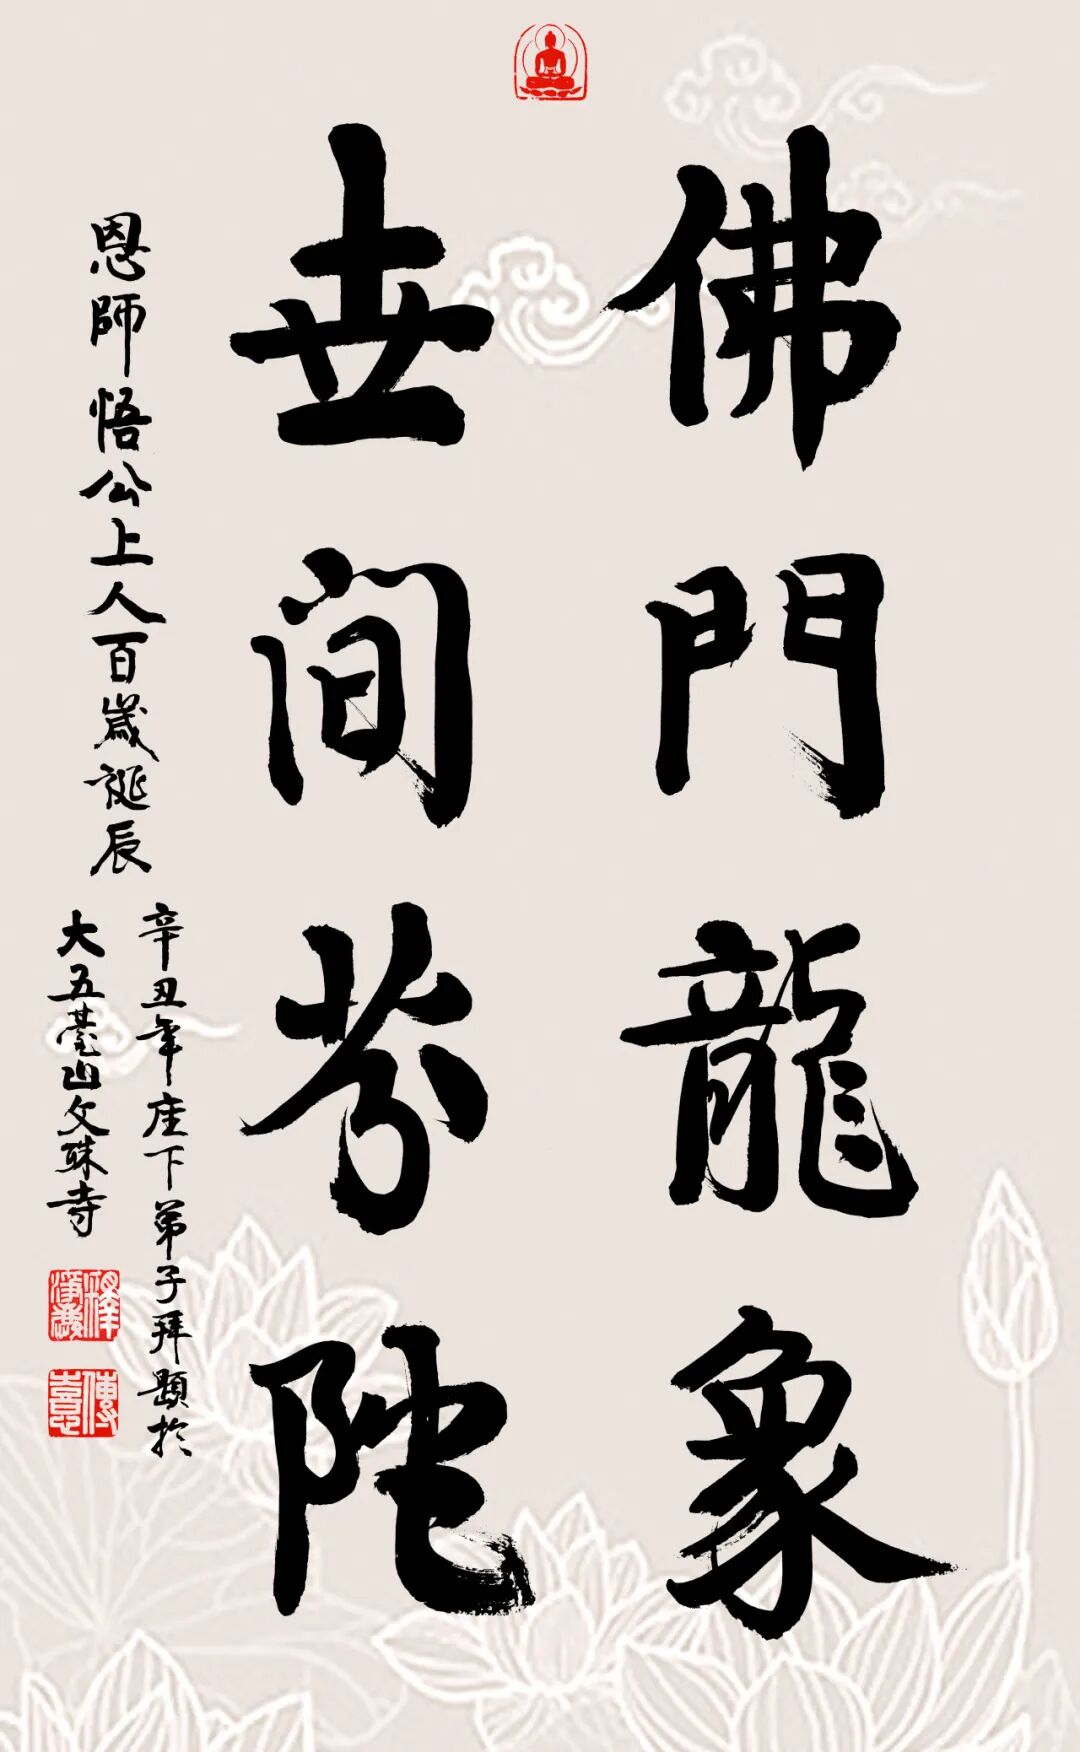 佛門龍象
世间芬陀
恩師悟公上人百歲誕辰
辛丑年座下弟子拜題於
大五臺山文殊寺
釋
傳喜